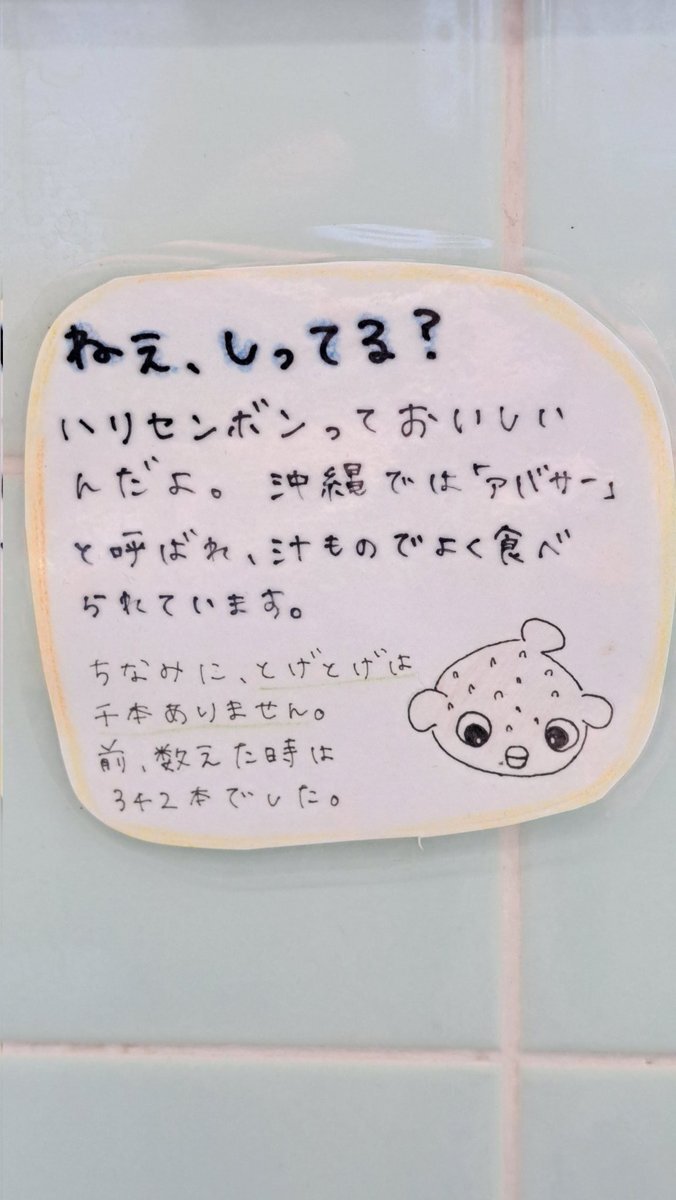 ねぇ、しってる?
ハリセンボンっておいしい
んだよ。沖縄では「アバサー」
と呼ばれ、汁ものでよく食べ
られています。
ちなみに、とげとげは
千本ありません。
前、数えた時は
342本でした。